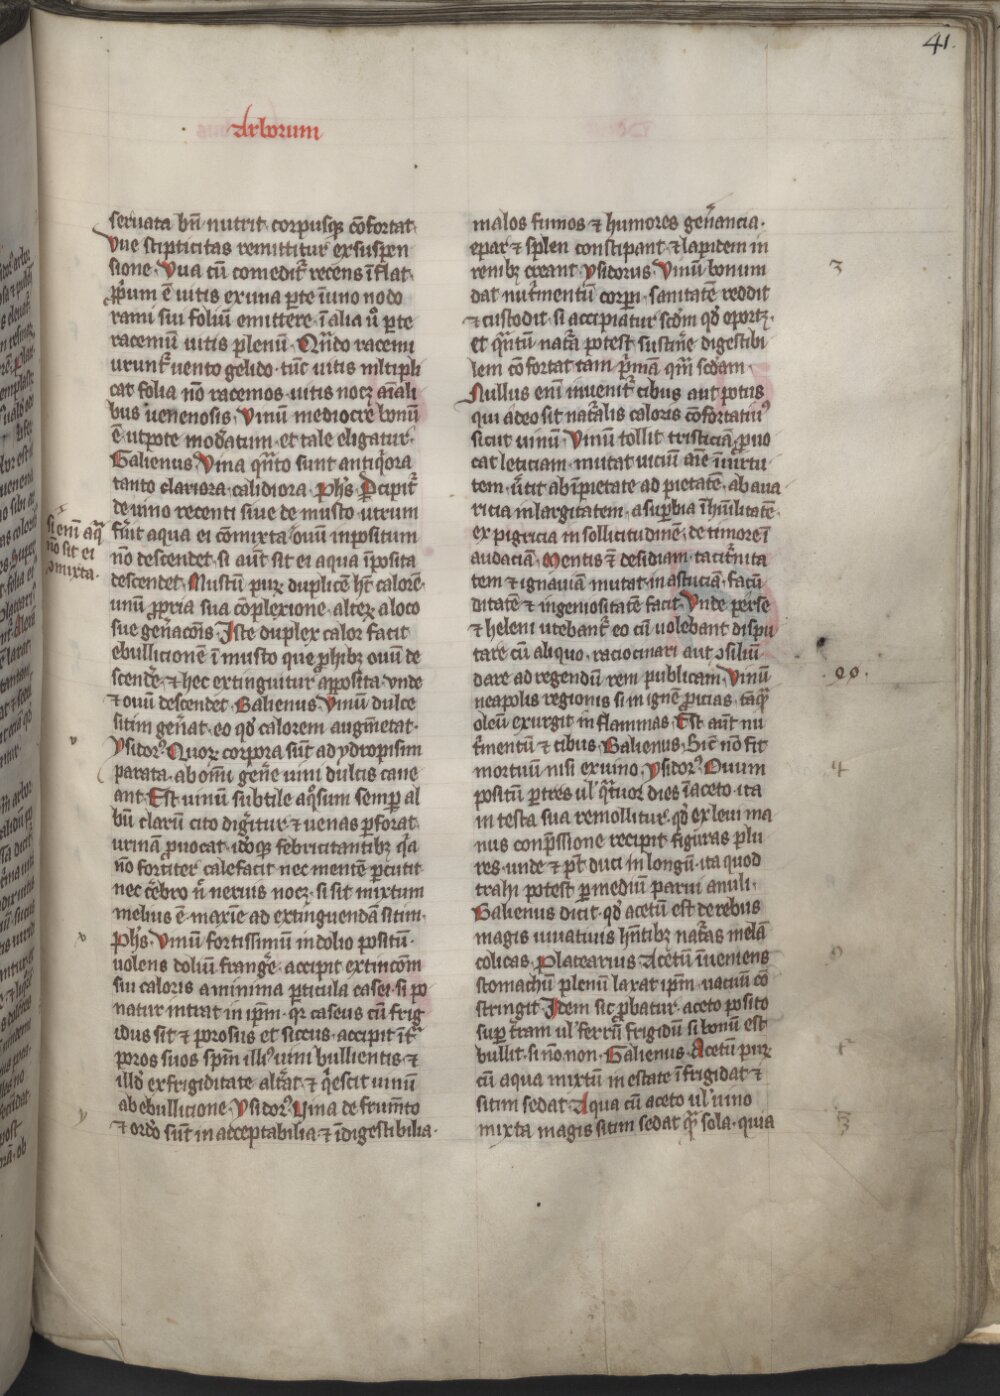 41.
Arborum
seruata bn̄ nutrit · corpusqꝫ cōfortat
Vue stipticitas remittitur ex suspen
sione · Vua cū comeditr̄ recens īflat ·
ꝓpum ē uitis ex una ꝑte ī uno nodo
rami sui foliū emittere · ī alia ū ꝑte
racemū uitis plenū · Qn̄do racemi
uruntr̄ uento gelido · tūc uitis ml̄tipli
cat folia nō racemos · uitis nocꝫ aīali
bus uenenosis · Vinū mediocre bonū
ē utpote mod̄atum · et tale eligatur ·
Galienus Vina qn̄to sunt antiq̄ora
tanto clariora · calidiora · Ph̄s · P̄cipitr̄
de uino recenti siue de musto utrum
fūit aqua ei cōmixta · ouū inpositum
nō descendet · si aūt sit ei aqua īposita
descendet · Mustū pur̄ duplicē hr̄t calorē ·
unū ꝓpria sua cōplexione · alter̄ a loco
sue gen̄acōis · Iste duplex calor facit
ebullicionē ī musto que ꝓhibꝫ ouū de
scende · ⁊ hec extinguitur aq̄ apposita · vnde
⁊ ouū descendet · Galienus · Vinū dulce
sitim gen̄at · eo qd̄ calorem augmētat ·
Ysidorꝰ · Quor̄ corpora sūt ad ydropisim
parata · ab omī gen̄e uini dulcis caue
ant · Est uinū subtile aq̄sum semꝑ al
bū clarū cito diḡitur · ⁊ uenas ꝑforat
urinā ꝓuocat · idoqꝫ febricitantibꝫ q̄a
nō fortiter calefacit nec mentē ꝑcutit
nec c̄ebro n̄ neruis nocꝫ · si sit mixtum
melius ē maxīe ad extinguendā sitim ·
Ph̄s · Vinū fortissimū in dolio positū ·
uolens doliū franḡe · accipit extincōm
sui caloris a minima ꝑticula casei · si po
natur intrat in ip̄m · qr̄ caseus cū frig
idus sit ⁊ porosus et siccus · accipit ītr̄
poros suos spm̄ illiꝰ uini bullientis · ⁊
illd̄ ex frigiditate alt̄at · ⁊ q̄escit uinū
ab ebullicione · Ysidorꝰ Vina de frum̄to
⁊ ordo sūt inacceptabilia · ⁊ īdigestibilia ·
si enī aq̄
nō sit ei
ↄmixta ·
malos fumos ⁊ humores gen̄ancia ·
epar ⁊ splen constipant ⁊ lapidem in
renibꝫ creant · Ysidorus · Vinū bonum
dat nut̄mentū corpi · sanitatē reddit
⁊ custodit · si accipiatur scd̄m qd̄ oportꝫ ·
et qn̄tū nat̄a potest sustinē digestibi
lem cōfortat tam p̄mā qm̄ scd̄am
Nullus enī inuenitr̄ cibus aut potus
qui adeo sit nat̄alis caloris cōfortatiuꝰ
sicut uinū · Vinū tollit tristiciā ꝓuo
cat leticiam · mutat uiciū aīe ī uirtu
tem · ūtit ab īpietate ad pietatē · ab aua
ricia in largitatem · a suꝑbia ī hūilitatē
ex pigricia in sollicitudinē · de timore ī
audaciā · Mentis ⁊ desidiam · tacitr̄nita
tem ⁊ ignauiam mutat in astuciā · facū
ditatē ⁊ ingeniositatē facit · Vnde perse
⁊ heleni utebantr̄ eo cū uolebant dispu
tare cū aliquo · raciocinari aut ↄsiliū
dare ad regendū rem publicam · Vinū
neapolis regionis si in ignē ꝓicias · tāq̄
oleū exurgit in flammas · Est aūt nu
t̄mentū ⁊ cibus · Galienus · Sic nō fit
mortuū nisi ex uino · Ysidorꝰ · Ouum
positū ꝑ tres ul̄ q̄tuor dies ī aceto · ita
in testa sua remollitur · qd̄ ex leui ma
nus conp̄ssione recipit figuras plu
res · unde ⁊ pt̄ duci in longū · ita quod
trahi potest ꝑ mediū parui anuli ·
Galienus dicit · qd̄ acetū est de rebus
magis iuuatiuis hn̄tibꝫ nat̄as melā
colicas · Platearius Acetū īueniens
stomachū plenū laxat ip̄m · uacuū cō
stringit · Idem sic ꝓbatur · aceto posito
suꝑ t̄ram ul̄ ferrū frigidū si bonū est
bullit · si nō non · Galienus · Acetū pur̄
cū aqua mixtū in estate īfrigidat ⁊
sitim sedat · Aqua cū aceto ul̄ uino
mixta magis sitim sedat q̄ sola · quia
3
4